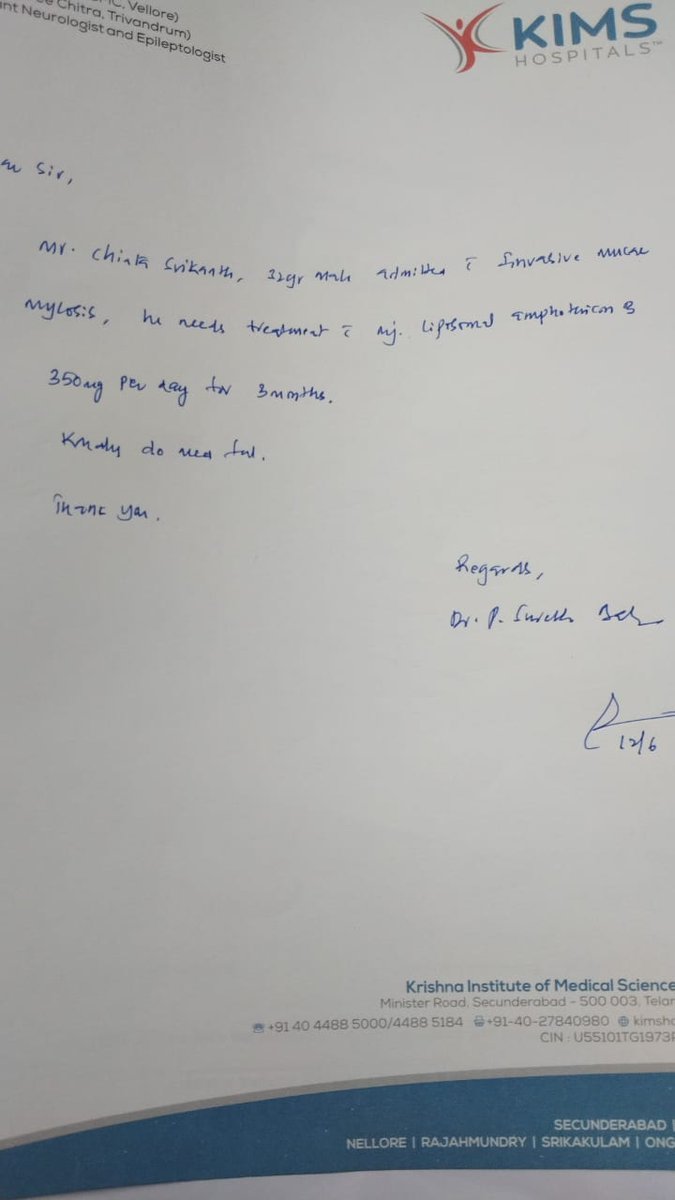 C, Vellore)
e Chitra, Trivandrum)
nt Neurologist and Epileptologist
KIMS
HOSPITALS™
Sir,
Mr. Chinta Srikanth, 32yr Male admitted c̄ Invasive mucor
mycosis, he needs treatment c̄ inj. Liposomal amphotericin B
350mg per day for 3 months.
Kindly do need ful.
Thank you.
Regards,
Dr. P. Suresh
12/6
Krishna Institute of Medical Science
Minister Road, Secunderabad - 500 003, Telan
+91 40 4488 5000/4488 5184 +91-40-27840980 kimsho
CIN : U55101TG1973P
SECUNDERABAD |
NELLORE | RAJAHMUNDRY | SRIKAKULAM | ONG